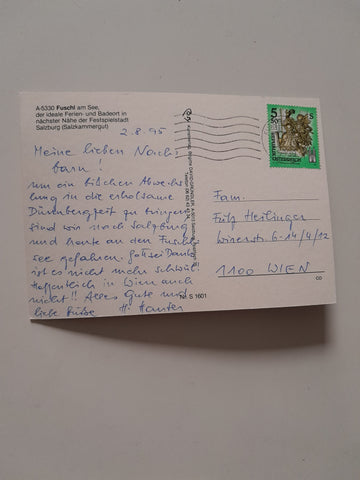 A-5330 Fuschl am See,
der ideale Ferien- und Badeort in
nächster Nähe der Festspielstadt
Salzburg (Salzkammergut)
2.8.95
Meine lieben Nach-
barn!
Um ein bißchen Abwechs-
lung in die erholsame
Dürrnbergzeit zu bringen
sind wir nach Salzburg
und heute an den Fuschl-
see gefahren. Gottseidank
ist es nicht mehr schwül!
Hoffentlich in Wien auch
nicht!! Alles Gute und
liebe Grüße
Nr. S 1601
5
50
S
ÖSTERREICH
Fam.
Fritz
6-14/4/12
1100 WIEN